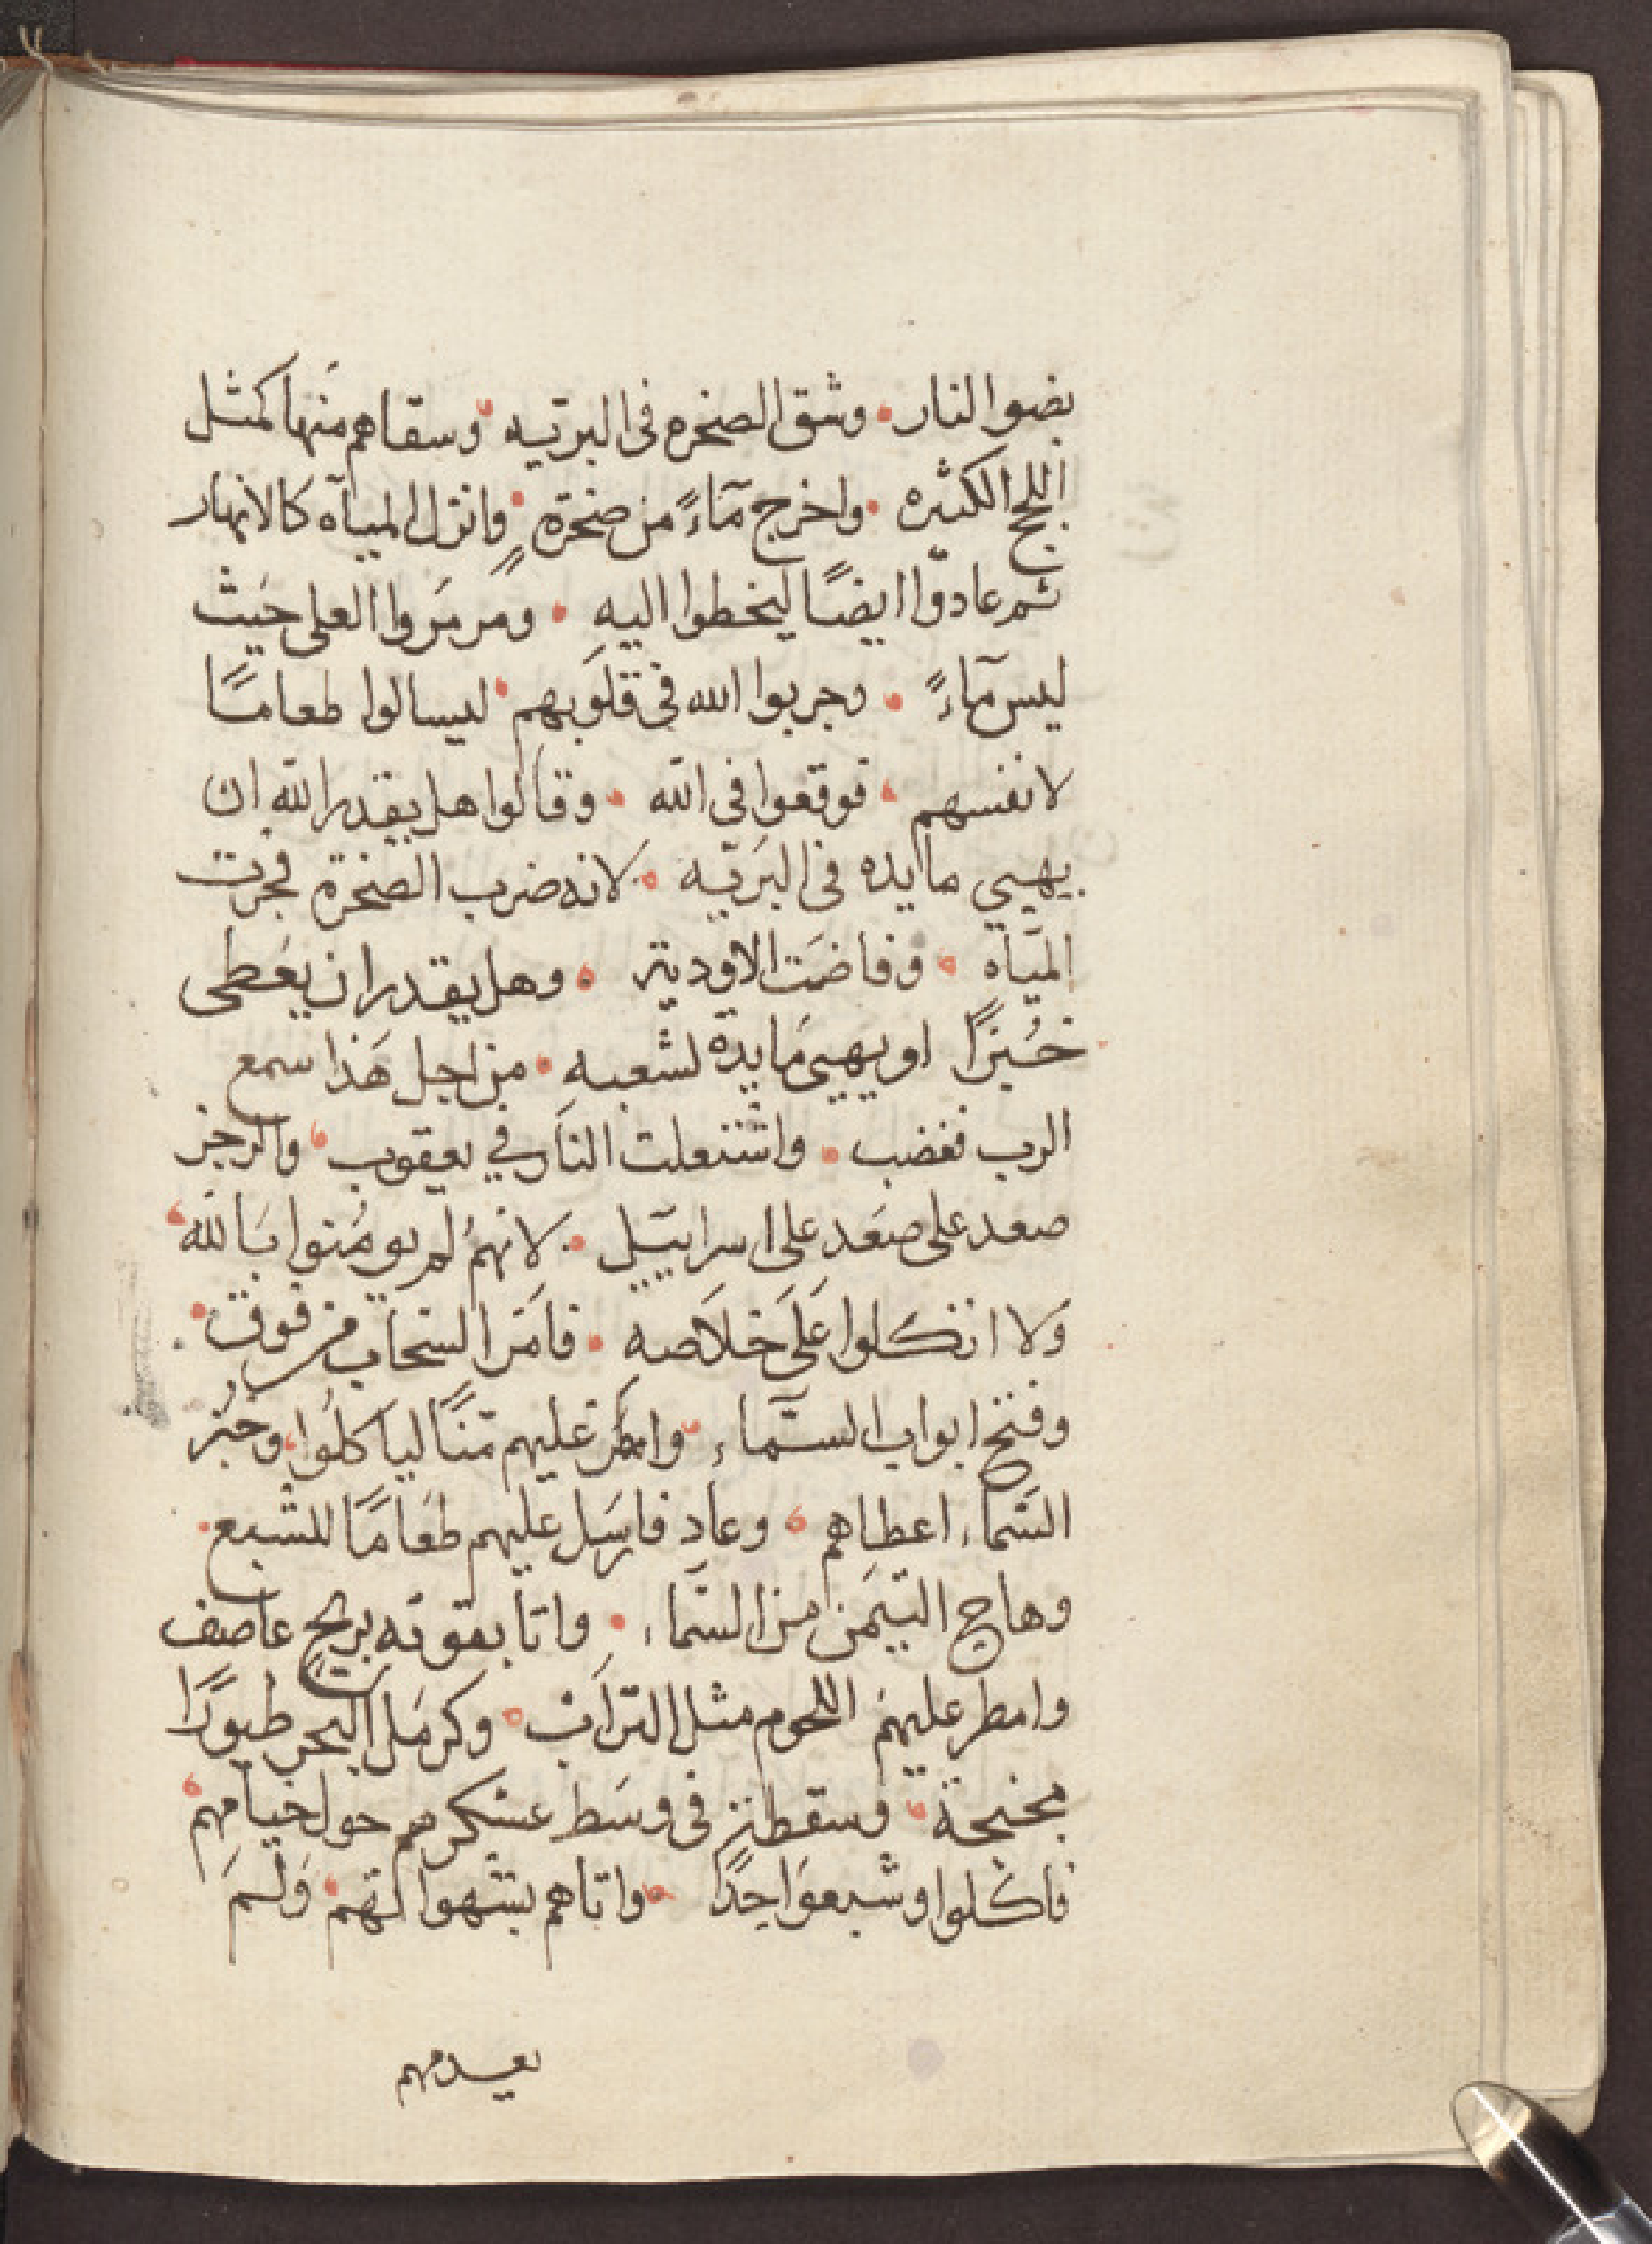 بضوا النار • وشق الصخره فى البريّه • وسقاهم منها كمثل
اللجج الكثيره • واخرج مآءً من صخرةٍ • وانزل المياه كالانهار
ثم عادوا ايضًا ليخطوا اليه • ومرمروا العلى حيث
ليس مآءً • وجربوا الله فى قلوبهم • ليسالوا طعامًا
لانفسهم • فوقعوا فى الله • وقالوا هل يقدر الله ان
يهيي مايده فى البريّه • لانه ضرب الصخرة فجرت
المياه • وفاضت الاودية • وهل يقدر ان يعطى
خُبزًا او يهيى مايدة لشعبه • من اجل هذا سمع
الرب فغضب • واشتعلت النار في يعقوب • والرجز
صعد على صعد على اسراييل • لانهم لم يومنوا بالله •
ولا اتكلوا على خلاصه • فامر السحاب من فوق •
وفتح ابواب السمآء • وامطر عليهم منًّا لياكلوا • وخبز
السماء اعطاهم • وعاد فارسل عليهم طعامًا للشبع •
وهاج التيمن من السماء • واتا بقوته بريح عاصف
وامطر عليهم اللحوم مثل التراب • وكرمل البحر طيورًا
مجنحة • وسقطت فى وسط عسكرهم حول خيامهم •
فاكلوا وشبعوا جدًا • واتاهم بشهواتهم • ولم
يعدمهم